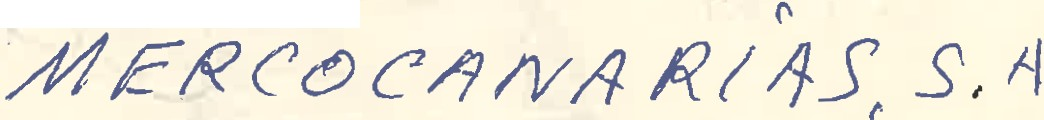 MERCOCANARIAS, S.A